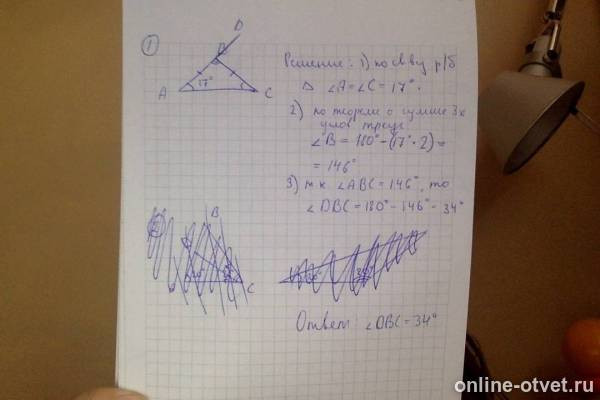 1
D
B
A 17° C
Решение: 1) по св-ву р/б
Δ ∠A=∠C=17°.
2) по теореме о сумме 3х
углов треуг.
∠B = 180°-(17°·2)=
= 146°
3) т.к ∠ABC=146°, то
∠DBC=180°-146°-34°
B
C
Ответ: ∠DBC=34°
online-otvet.ru